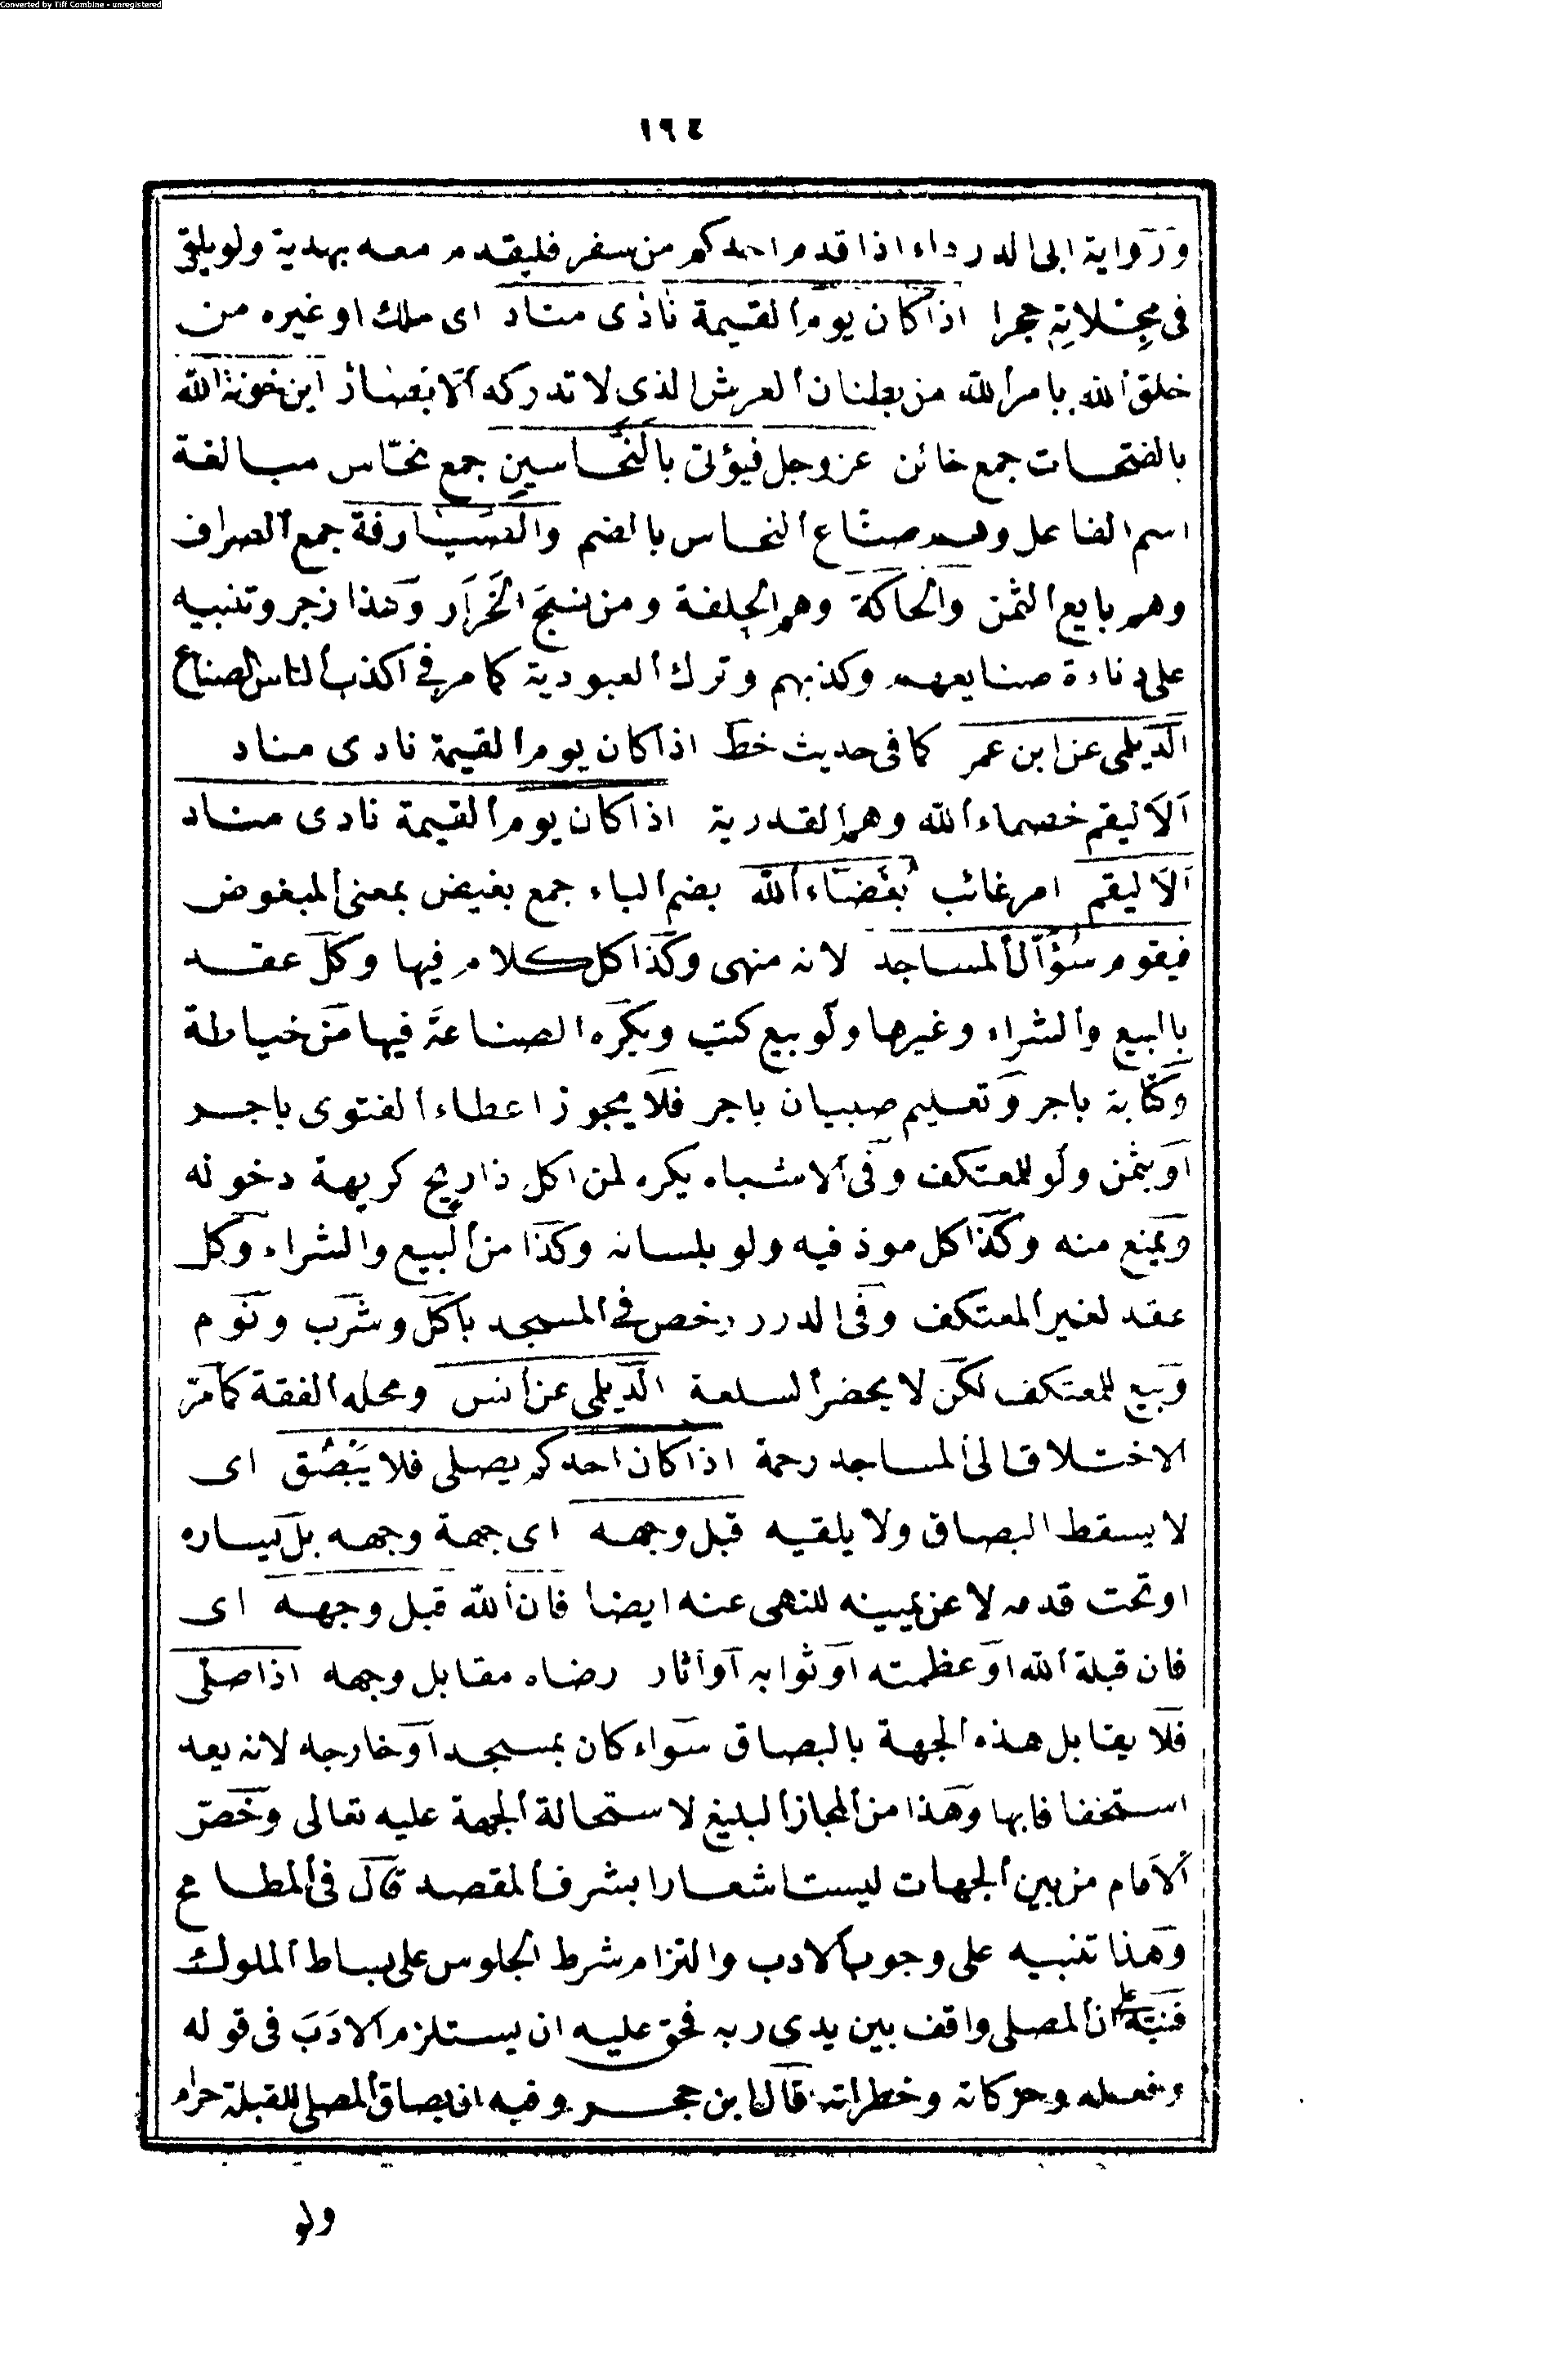 Converted by Tiff Combine - unregistered
١٩٤
ورواية ابى الدرداء اذا قدم احدكم من سفر فليقدم معه بهدية ولو يلقى
فى مِخْلاتِهِ حجرا اذا كان يوم القيمة نادى مناد اى ملك او غيره من
خلق الله بامر الله من بطنان العرش الذى لا تدركه الابصار اين خونة الله
بالفتحات جمع خائن عز وجل فيؤتى بالنَّحاسين جمع نحّاس مبالغة
اسم الفاعل وهم صنّاع النحاس بالضم والصيارفة جمع الصراف
وهم بايع الثمن والحاكة وهم الجلفة ومن نسج الخزاز وهذا زجر وتنبيه
على دناءة صنايعهم وكذبهم وترك العبودية كما مر فى اكذب الناس الصناع
الديلمى عن ابن عمر كما فى حديث خط اذا كان يوم القيمة نادى مناد
الا ليقم خصماء الله وهم القدرية اذا كان يوم القيمة نادى مناد
الا ليقم امر غائب بُغَضَاء الله بضم الباء جمع بغيض بمعنى المبغوض
فيقوم سُؤّال المساجد لانه منهى وكذا كل كلام فيها وكل عقد
بالبيع والشراء وغيرها ولو بيع كتب ويكره الصناعة فيها من خياطة
وكتابة باجر وتعليم صبيان باجر فلا يجوز اعطاء الفتوى باجر
او بثمن ولو للمعتكف وفى الاشباه يكره لمن اكل ذا ريح كريهة دخوله
ويمنع منه وكذا كل موذ فيه ولو بلسانه وكذا من البيع والشراء وكل
عقد لغير المعتكف وفى الدرر رخص فى المسجد باكل وشرب ونوم
وبيع للمعتكف لكن لا يحضر السلعة الديلمى عن انس ومحله الفقة كما مر
الاختلاف الى المساجد رحمة اذا كان احدكم يصلى فلا يَبْصُق اى
لا يسقط البصاق ولا يلقيه قبل وجهه اى جهة وجهه بل يساره
او تحت قدمه لا عن يمينه للنهى عنه ايضا فان الله قبل وجهه اى
فان قبلة الله او عظمته او ثوابه او اثار رضاه مقابل وجهه اذا صلى
فلا يقابل هذه الجهة بالبصاق سواء كان بمسجد او خارجه لانه يعد
استخفافا بها وهذا من المجاز البليغ لاستحالة الجهة عليه تعالى وخص
الامام من بين الجهات ليست اشعارا بشرف المقصد قال فى المطامح
وهذا تنبيه على وجوب الادب والتزام شرط الجلوس على بساط الملوك
فنبه على ان المصلى واقف بين يدى ربه فحق عليه ان يستلزم الادب فى قوله
وفعله وحركاته وخطراته قال ابن حجر وفيه ان بصاق المصلى للقبلة حرام
ولو